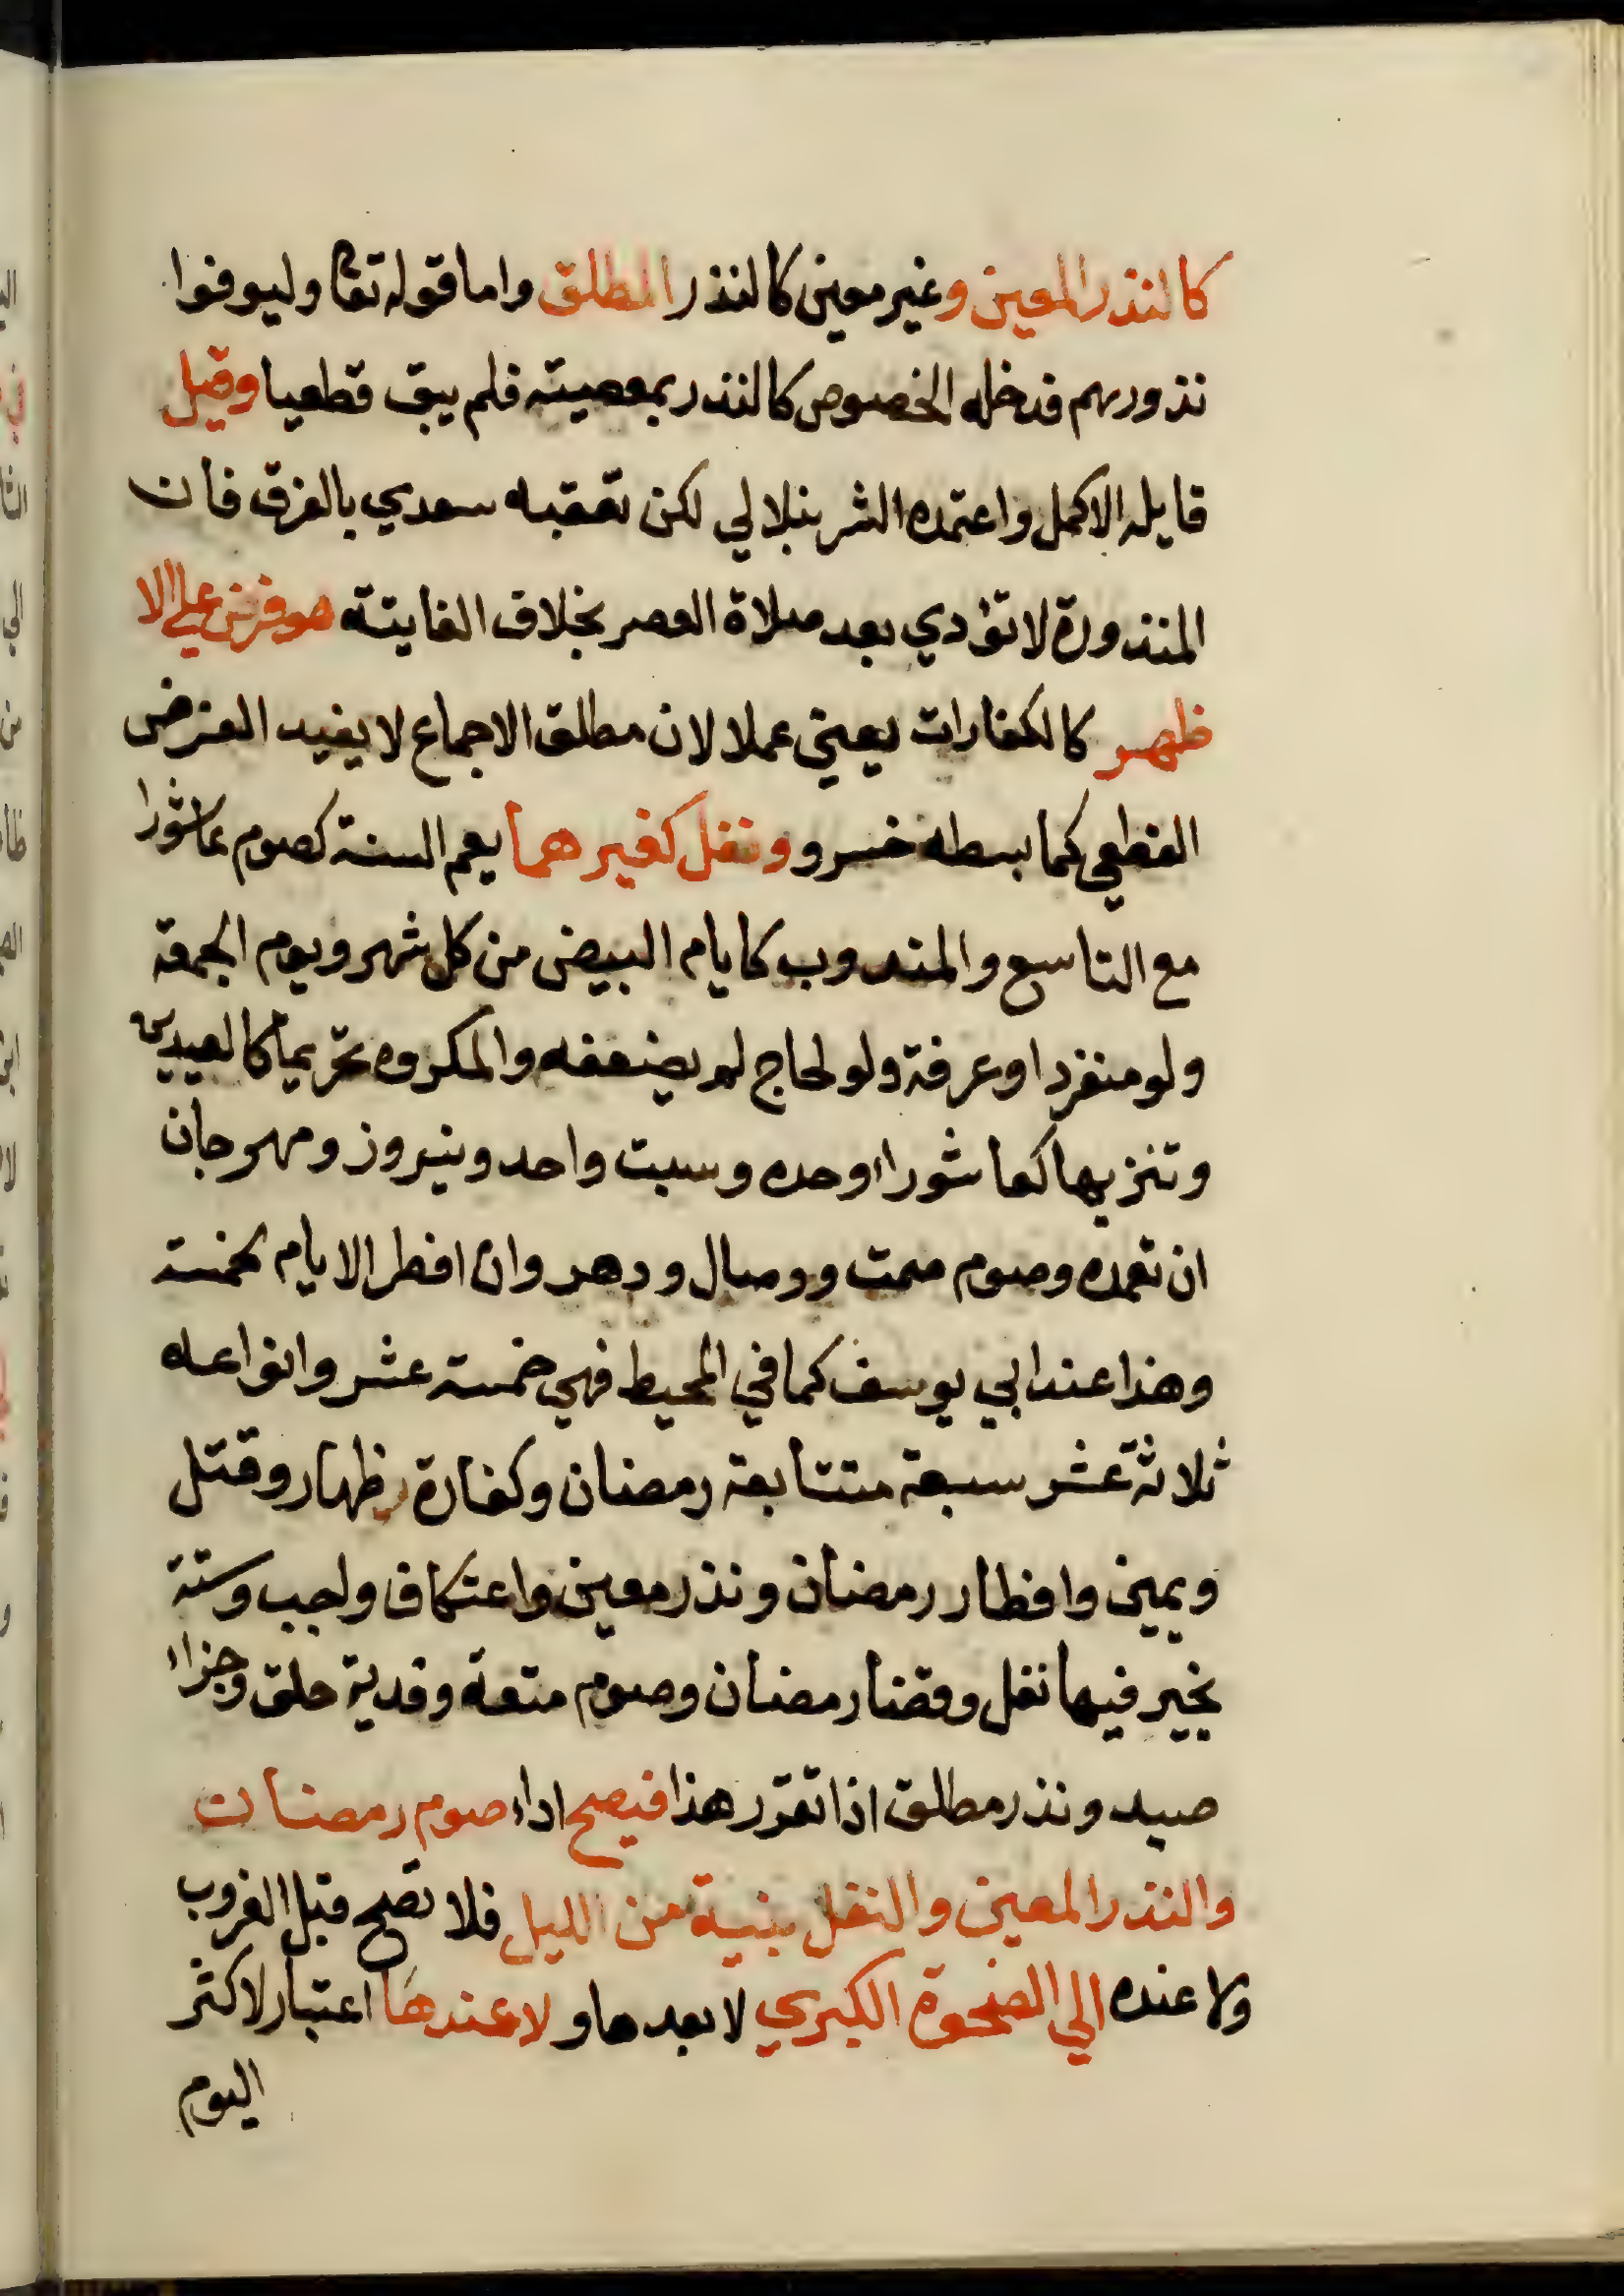 كالنذر المعين وغير معين كالنذر المطلق واما قوله تعا وليوفوا
نذورهم فدخله الخصوص كالنذر بمعصيته فلم يبق قطعيا وقيل
قايله الاكمل واعتمده الشرنبلالي لكن تعقبه سعدي بالفرق فان
المنذورة لا تؤدي بعد صلاة العصر بخلاف الفايتة هو فرض علي الا
ظهر كالكفارات يعني عملا لان مطلق الاجماع لا يفيد الفرض
القطعي كما بسطه خسرو ونفل كغيرهما يعم السنة كصوم عاشورا
مع التاسع والمندوب كايام البيض من كل شهر ويوم الجمعة
ولو منفردا وعرفة ولو لحاج لم يضعفه والمكروه تحريما كالعيدين
وتنزيها كعاشوراء وحده وسبت واحد ونيروز ومهرجان
ان تعمده وصوم صمت ووصال ودهر وان افطر الايام الخمسة
وهذا عند ابي يوسف كما في المحيط فهي خمسة عشر وانواعه
ثلاثة عشر سبعة متتابعة رمضان وكفارة ظهار وقتل
ويمين وافطار رمضان ونذر معين واعتكاف واجب وستة
يخير فيها نفل وقضا رمضان وصوم متعة وفدية حلق وجزاء
صيد ونذر مطلق اذا تقرر هذا فيصح اداء صوم رمضان
والنذر المعين والنفل بنية من الليل فلا تصح قبل الغروب
ولا عنده الي الضحوة الكبري لا بعدها ولا عندها اعتبار لاكثر
اليوم